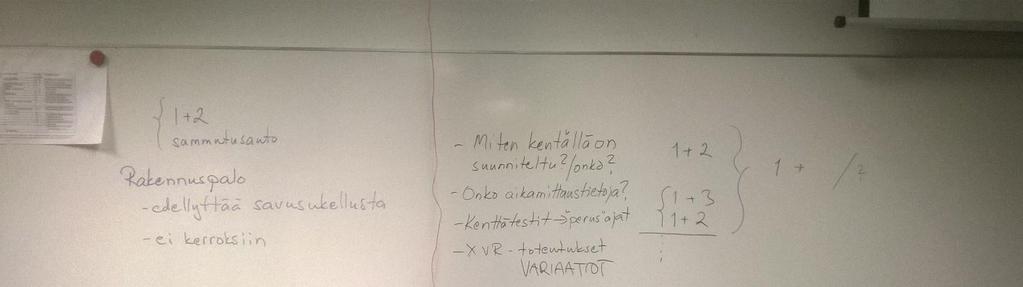 1+2
sammutusauto
Rakennuspalo
-edellyttää savusukellusta
-ei kerroksiin
- Miten kentällä on
suunniteltu?/onko?
-Onko aikamittaustietoja?
-Kenttätestit→"perus"ajat
-XVR-toteutukset
VARIAATIOT
1+2
1+3
1+2
1 + /?